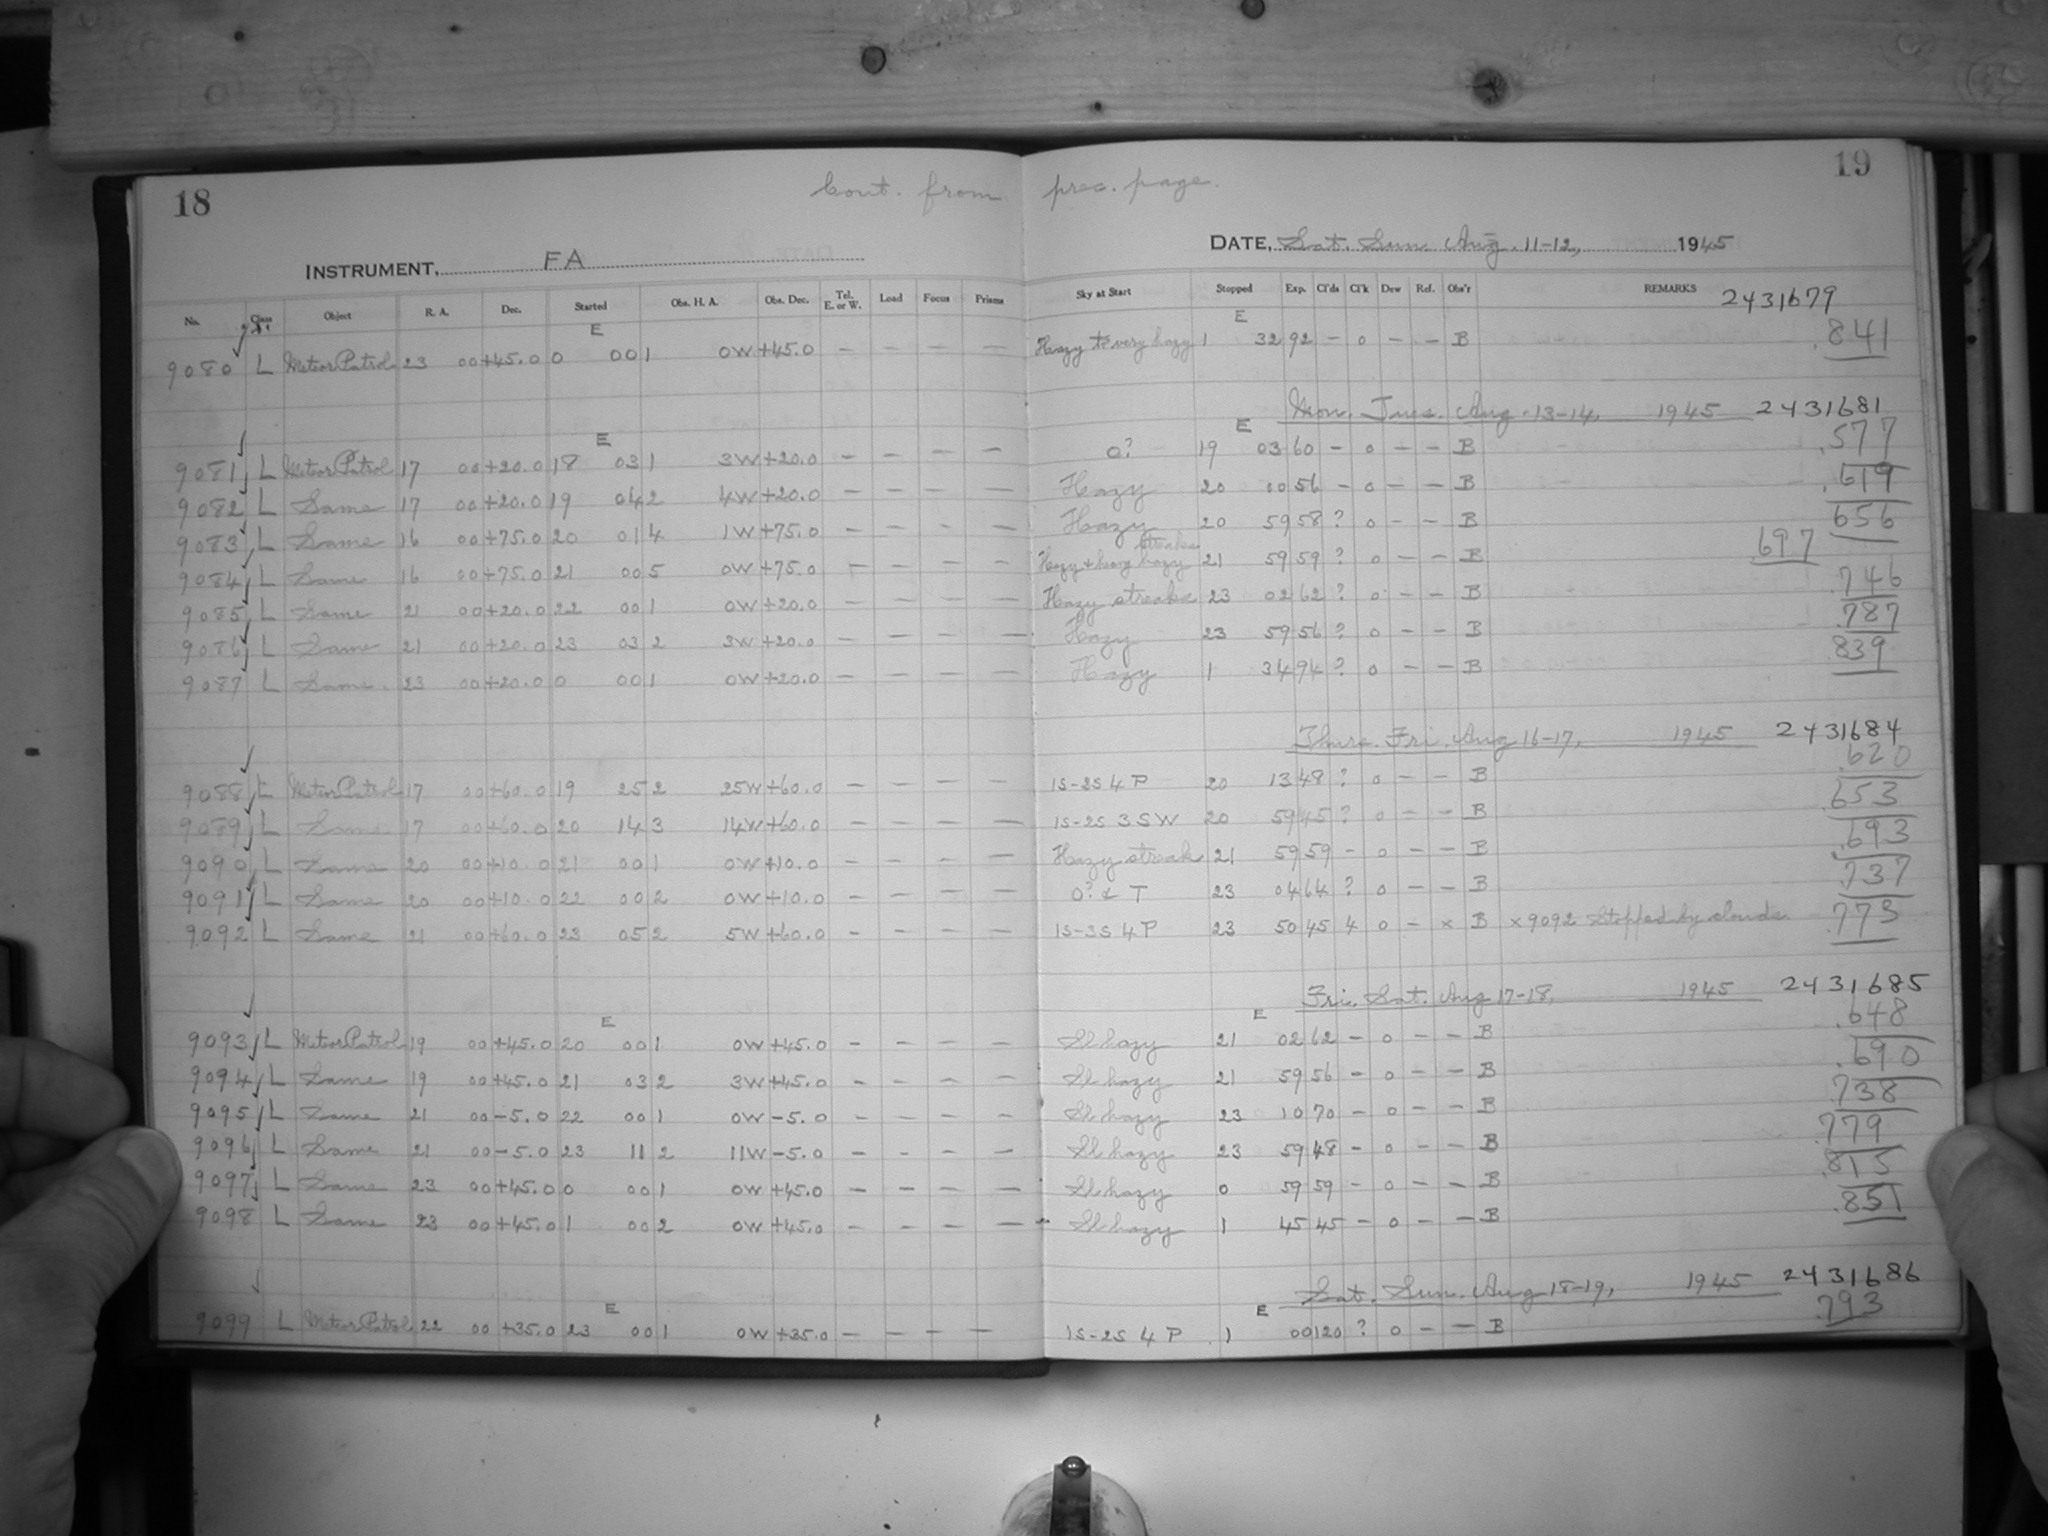 18
Cont. from prec. page.
19
INSTRUMENT, FA
DATE, Sat. Sun. Aug. 11-12, 1945
No. Class Object R. A. Dec. Started Obs. H. A. Obs. Dec. Tel. E. or W. Load Focus Prisms Sky at Start Stopped Exp. Cl'ds Cl'k Dew Ref. Obs'r REMARKS 2431679
E E
9080 L Meteor Patrol 23 00 +45.0 0 00 1 0W +45.0 – – – – Hazy to very hazy 1 32 92 – 0 – – B .841
Mon. Tues. Aug. 13-14, 1945 2431681
E E
9081 L Meteor Patrol 17 00 +20.0 18 03 1 3W +20.0 – – – – 0? 19 03 60 – 0 – – B .577
9082 L Same 17 00 +20.0 19 04 2 4W +20.0 – – – – Hazy 20 00 56 – 0 – – B .619
9083 L Same 16 00 +75.0 20 01 4 1W +75.0 – – – – Hazy 20 59 58 ? 0 – – B 656
9084 L Same 16 00 +75.0 21 00 5 0W +75.0 – – – – Hazy + hazy streaks 21 59 59 ? 0 – – B 697
9085 L Same 21 00 +20.0 22 00 1 0W +20.0 – – – – Hazy streaks 23 02 62 ? 0 – – B .746
9086 L Same 21 00 +20.0 23 03 2 3W +20.0 – – – – Hazy 23 59 56 ? 0 – – B .787
9087 L Same 23 00 +20.0 0 00 1 0W +20.0 – – – – Hazy 1 34 94 ? 0 – – B 839
Thurs. Fri. Aug 16-17, 1945 2431684
9088 L Meteor Patrol 17 00 +60.0 19 25 2 25W +60.0 – – – – 1S-2S 4 P 20 13 48 ? 0 – – B .620
9089 L Same 17 00 +60.0 20 14 3 14W +60.0 – – – – 1S-2S 3 S W 20 59 45 ? 0 – – B .653
9090 L Same 20 00 +10.0 21 00 1 0W +10.0 – – – – Hazy streak 21 59 59 – 0 – – B .693
9091 L Same 20 00 +10.0 22 00 2 0W +10.0 – – – – 0? & T 23 04 64 ? 0 – – B .737
9092 L Same 21 00 +60.0 23 05 2 5W +60.0 – – – – 1S-3S 4 P 23 50 45 4 0 – x B x 9092 Stopped by clouds .773
Fri. Sat. Aug 17-18, 1945 2431685
E E
9093 L Meteor Patrol 19 00 +45.0 20 00 1 0W +45.0 – – – – Sl hazy 21 02 62 – 0 – – B .648
9094 L Same 19 00 +45.0 21 03 2 3W +45.0 – – – – Sl hazy 21 59 56 – 0 – – B .690
9095 L Same 21 00 –5.0 22 00 1 0W –5.0 – – – – Sl hazy 23 10 70 – 0 – – B .738
9096 L Same 21 00 –5.0 23 11 2 11W –5.0 – – – – Sl hazy 23 59 48 – 0 – – B .779
9097 L Same 23 00 +45.0 0 00 1 0W +45.0 – – – – Sl hazy 0 59 59 – 0 – – B .815
9098 L Same 23 00 +45.0 1 00 2 0W +45.0 – – – – Sl hazy 1 45 45 – 0 – – B .851
Sat. Sun. Aug 18-19, 1945 2431686
E E
9099 L Meteor Patrol 22 00 +35.0 23 00 1 0W +35.0 – – – – 1S-2S 4 P 1 00 120 ? 0 – – B .793